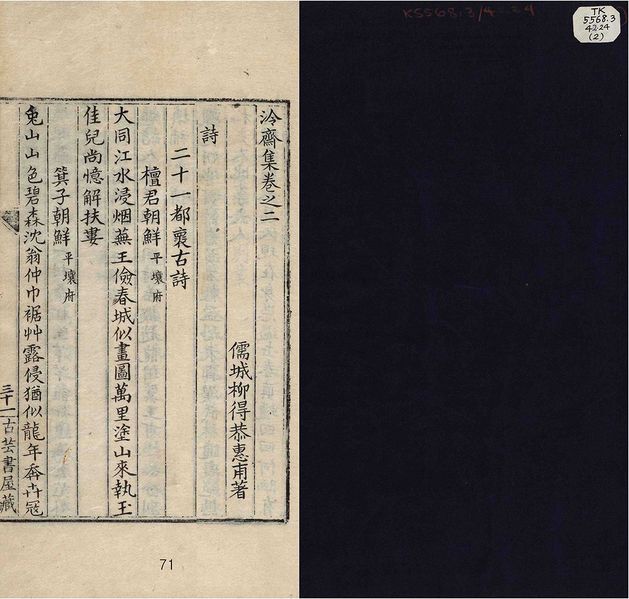 泠齋集卷之二
儒城柳得恭惠甫著
詩
二十一都褱古詩
檀君朝鮮 平壤府
大同江水浸烟蕪王儉春城似畫圖萬里塗山來執玉
佳兒尚憶解扶婁
箕子朝鮮 平壤府
兎山山色碧森沈翁仲巾裾艸露侵猶似龍年奔卉冠
三十一 古芸書屋藏
71
TK
5568.3
4224
(2)